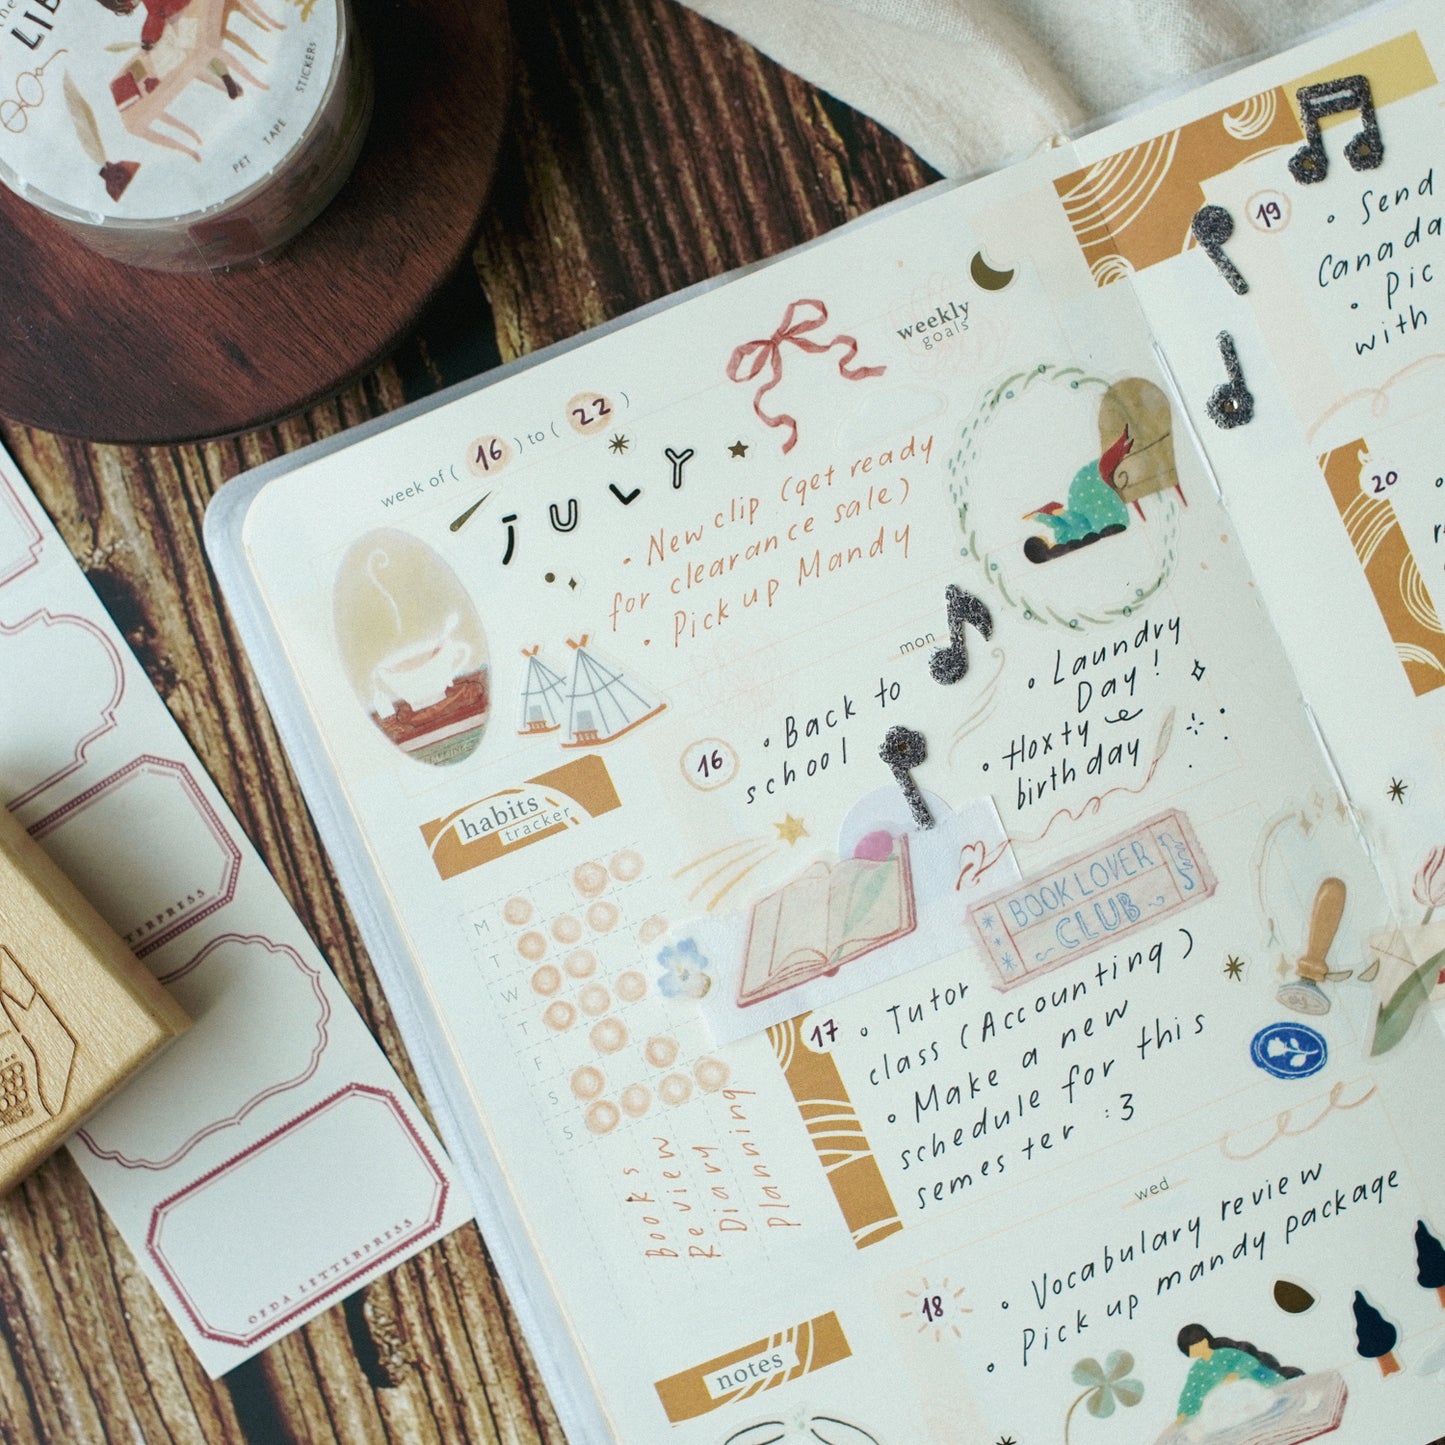 the
LIB
PET TAPE STICKERS
week of ( 16 ) to ( 22 )
JULY
weekly
goals
• New clip (get ready
for clearance sale)
• Pick up Mandy
mon
16
• Back to
school
• Laundry
Day!
• Hoxty
birthday
BOOK LOVER
CLUB
17
• Tutor
class (Accounting)
• Make a new
schedule for this
semester :3
wed
18
• Vocabulary review
• Pick up mandy package
habits
tracker
M
T
W
T
F
S
S
Books
Review
Diary
Planning
notes
19
• Send
Canada
• Pic
with
20
TERPRESS
OFDA LETTERPRESS